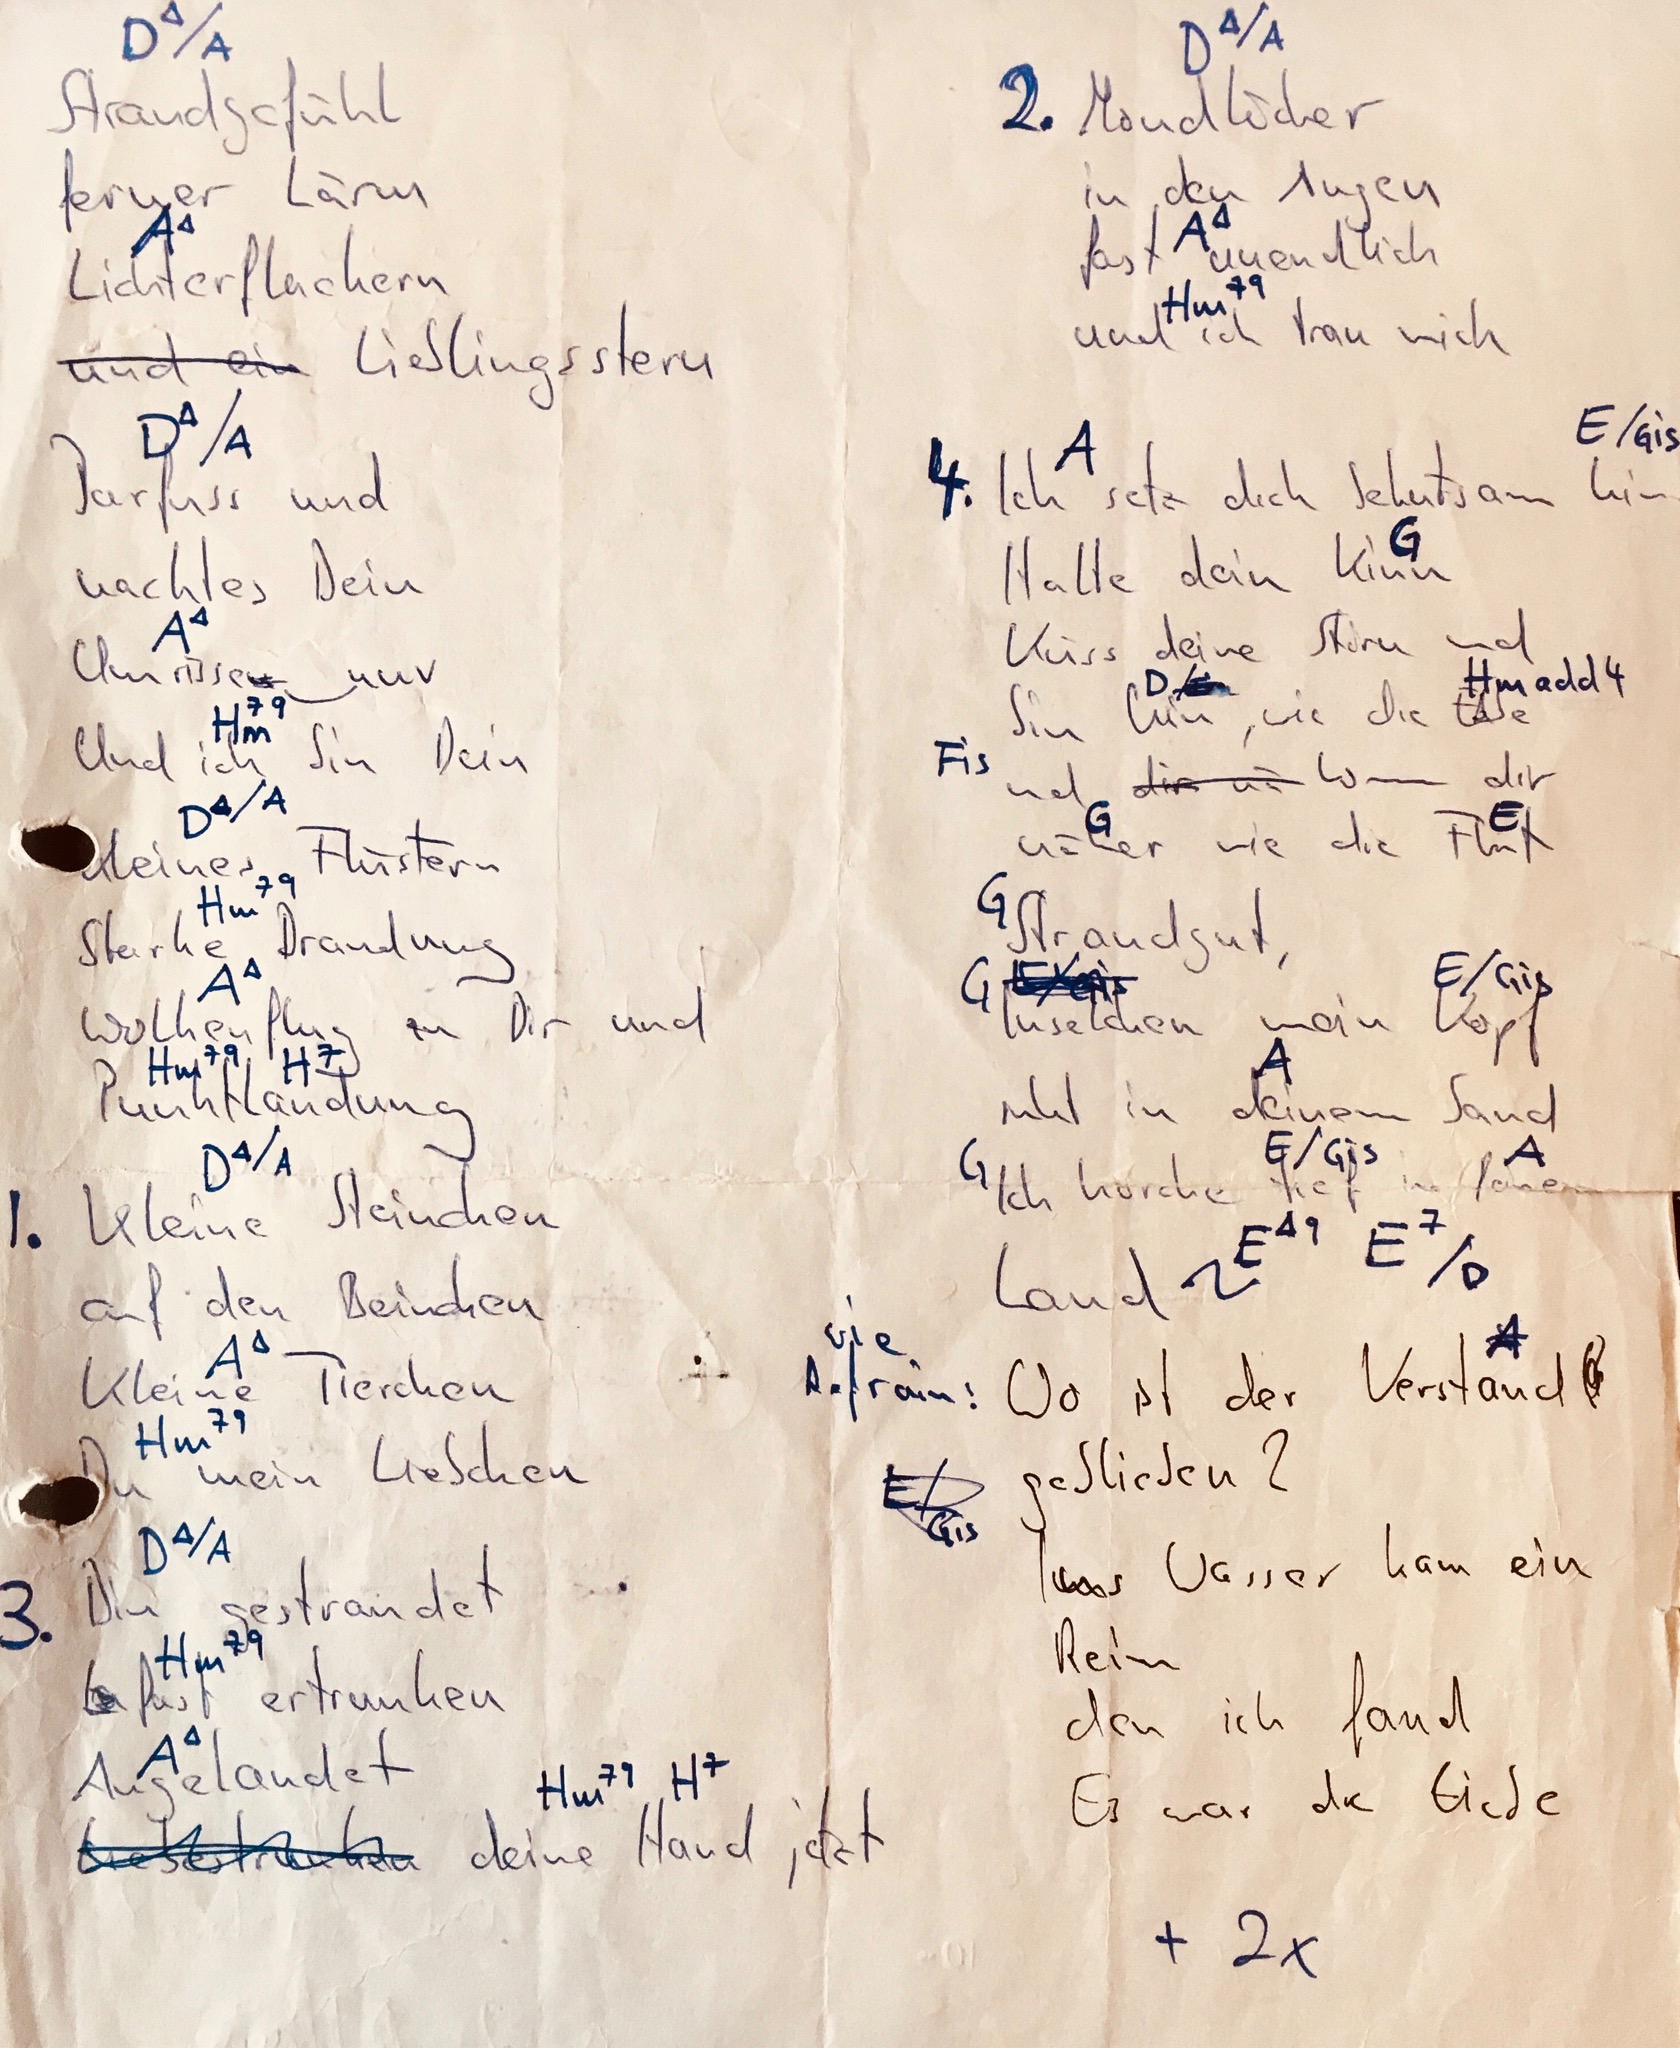 D△/A
Strandgefühl
ferner Lärm
A△
Lichterflackern
und ein Lieblingsstern
D△/A
Barfuss und
nacktes Bein
A△
Umrisse nur
Hm79
Und ich bin Dein
D△/A
kleines Flüstern
Hm79
Starke Brandung
A△
Wolkenflug zu Dir und
Hm79 H7
Punktlandung
D△/A
1. Kleine Steinchen
auf den Beinchen
A△
Kleine Tierchen
Hm79
Du mein Liebchen
D△/A
3. Bin gestrandet
Hm79
fast ertrunken
A△
Angelandet
Hm79 H7
Liebestrunken deine Hand jetzt
D△/A
2. Mondlöcher
in den Augen
A△
fast unendlich
Hm79
und ich trau mich
A E/Gis
4. Ich setz dich behutsam hin
G
Halte dein Kinn
Küss deine Stirn und
D Hm add4
bin hin, wie die Ebbe
Fis
und komm dir
G E
näher wie die Flut
G
Strandgut,
G E/Gis E/Gis
Inselchen mein Kopf
A
ruht in deinem Sand
G E/Gis A
Ich horche tief in
Land E△9 E7/D
wie
Refrain: Wo ist der Verstand A
E/Gis geblieben?
Ins Wasser kam ein
Reim
den ich fand
Es war die Liebe
+ 2x